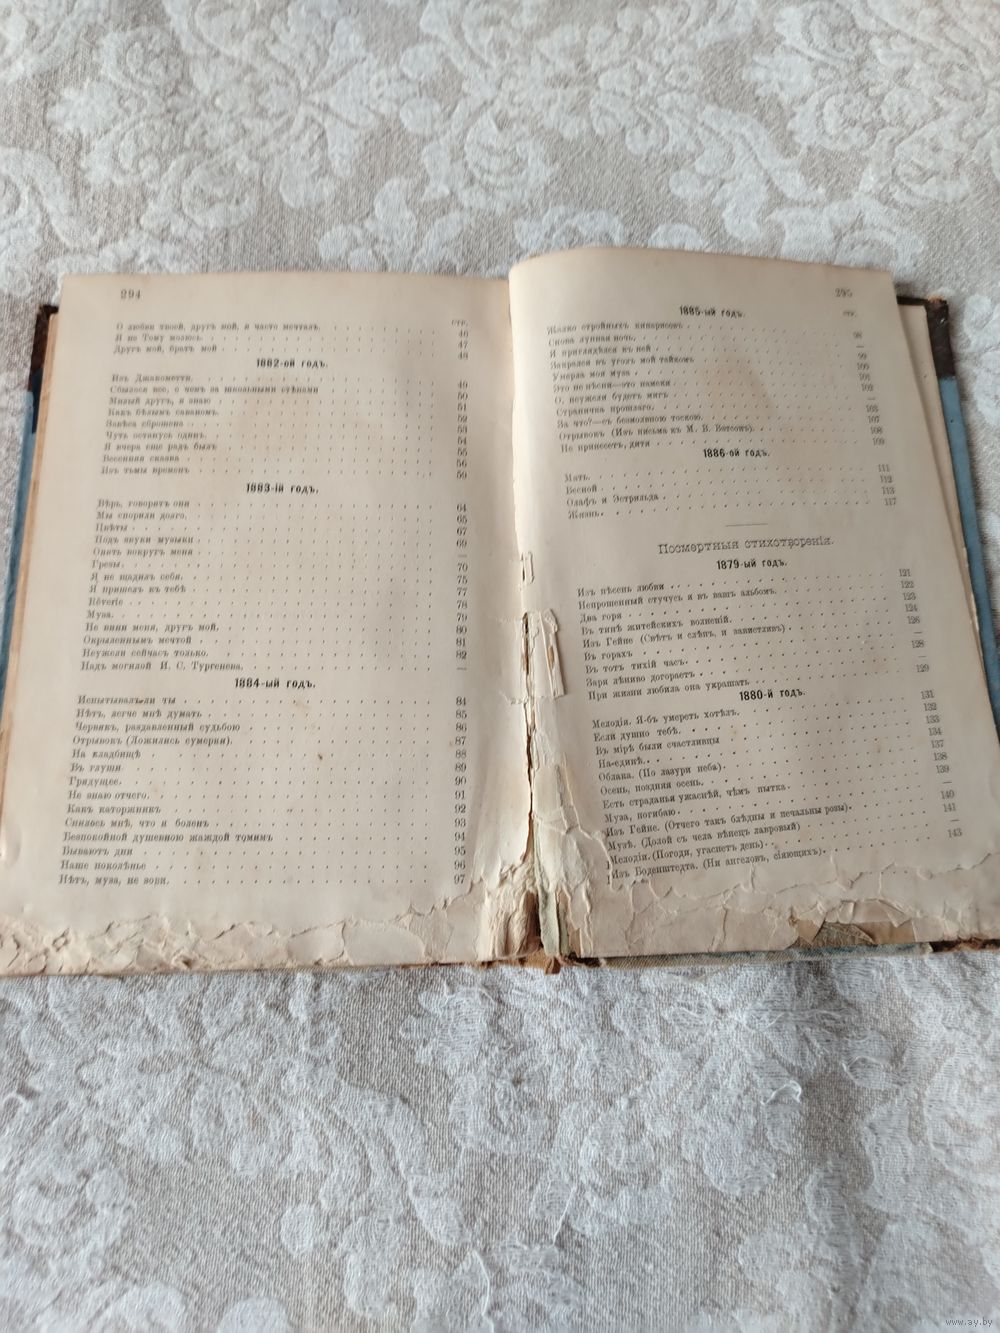 294
стр.
О любви твоей, другъ мой, я часто мечталъ. 46
Я не Тому молюсь. 47
Другъ мой, братъ мой 48
1882-ой годъ.
Изъ Джакометти. 49
Сбылося все, о чемъ за школьными стѣнами 50
Милый другъ, я знаю 51
Какъ бѣлымъ саваномъ. 52
Завѣса сброшена 53
Чуть останусь одинъ. 54
Я вчера еще радъ былъ 55
Весенняя сказка 56
Изъ тьмы временъ 59
1883-ій годъ.
Вѣрь, говорятъ они 64
Мы спорили долго. 65
Цвѣты 67
Подъ звуки музыки 69
Опять вокругъ меня —
Грезы. 70
Я не щадилъ себя. 75
Я пришелъ къ тебѣ 77
Rêverie 78
Муза. 79
Не вини меня, другъ мой. 80
Окрыленнымъ мечтой 81
Неужели сейчасъ только. 82
Надъ могилой И. С. Тургенева. —
1884-ый годъ.
Испытывалъ-ли ты 84
Нѣтъ, легче мнѣ думать 85
Червякъ, раздавленный судьбою 86
Отрывокъ (Ложились сумерки). 87
На кладбищѣ 88
Въ глуши 89
Грядущее. 90
Не знаю отчего. 91
Какъ каторжникъ 92
Снилось мнѣ, что я боленъ 93
Безпокойной душевною жаждой томимъ 94
Бываютъ дни 95
Наше поколѣнье 96
Нѣтъ, муза, не зови. 97
295
стр.
1885-ый годъ.
Жалко стройныхъ кипарисовъ 98
Снова лунная ночь. —
И приглядѣлся къ ней 99
Закрался въ уголъ мой тайкомъ 100
Умерла моя муза 101
Это не пѣсни—это намеки 102
О, неужели будетъ мигъ —
Страничка прошлаго. 103
За что?—съ безмолвною тоскою. 107
Отрывокъ (Изъ письма къ М. В. Ватсонъ). 108
Не принесетъ, дитя 109
1886-ой годъ.
Мать. 111
Весной 112
Олафъ и Эстрильда 113
Жизнь. 117
Посмертныя стихотворенія.
1879-ый годъ.
Изъ пѣсень любви 121
Непрошенный стучусь я въ вашъ альбомъ. 122
Два горя 123
Въ тинѣ житейскихъ волненій 124
Изъ Гейне (Свѣтъ и слѣпъ, и завистливъ) 126
Въ горахъ —
Въ тотъ тихій часъ. 128
Заря лѣниво догораетъ —
При жизни любила она украшать 129
1880-й годъ.
Мелодія. Я-бъ умереть хотѣлъ. 131
Если душно тебѣ. 132
Въ мірѣ были счастливцы 133
На-единѣ. 134
Облака. (По лазури неба). 137
Осень, поздняя осень. 138
Есть страданья ужаснѣй, чѣмъ пытка. 139
Муза, погибаю —
Изъ Гейне. (Отчего такъ блѣдны и печальны розы). 140
Музѣ. (Долой съ чела вѣнецъ лавровый) 141
Мелодіи. (Погоди, угаснетъ день). —
Изъ Боденштедта. (Ни ангеловъ, сіяющихъ). 143
www.ay.by